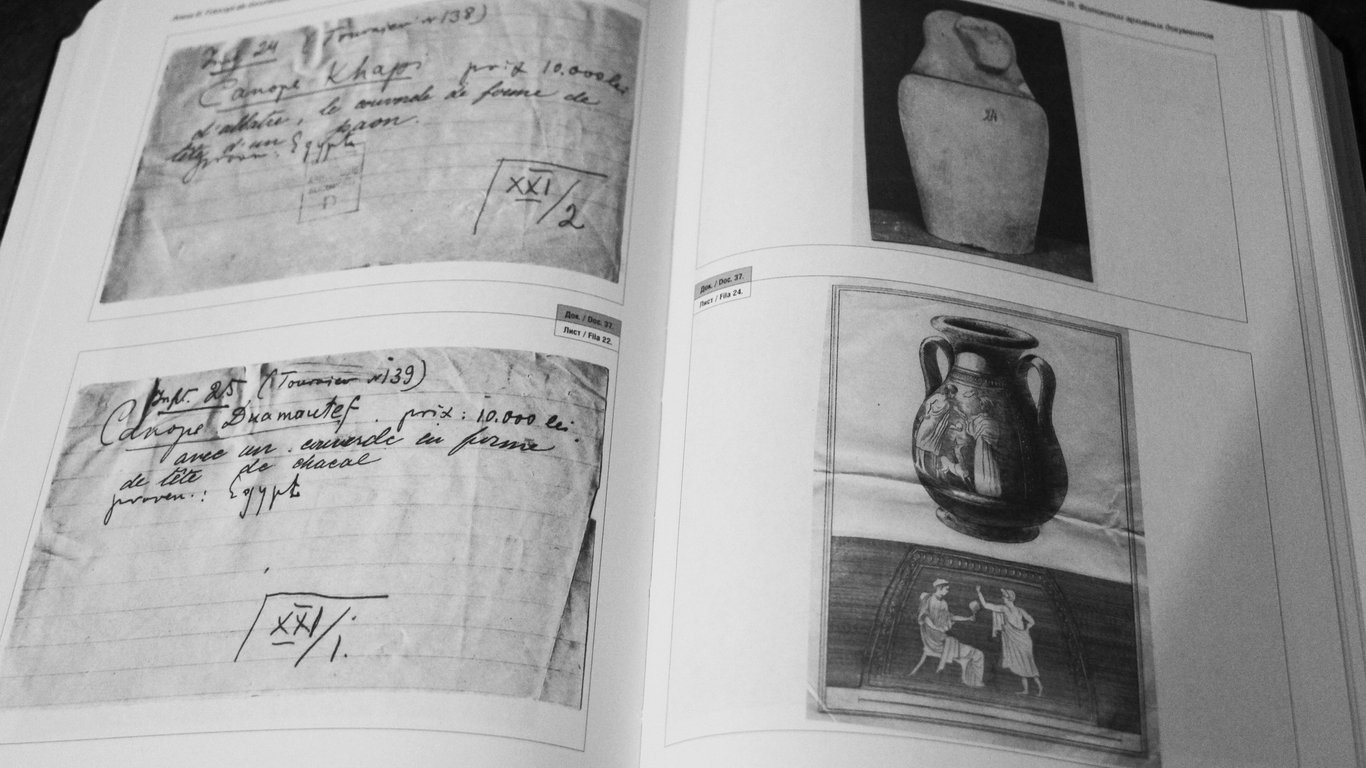 24 Tournier № 138)
Canope Khapi prix 10.000 lei
d'albâtre, le couvercle de forme de
tête d'un paon.
proven. Egypte
XXI/2
Док. / Doc. 37.
Лист / Fila 22.
25, (Tournier № 139)
Canope Duamoutef. prix: 10.000 lei.
avec un couvercle en forme
de tête de chacal
proven.: Egypte
XXI/1.
Фотокопии архивных документов
24
Док. / Doc. 37.
Лист / Fila 24.